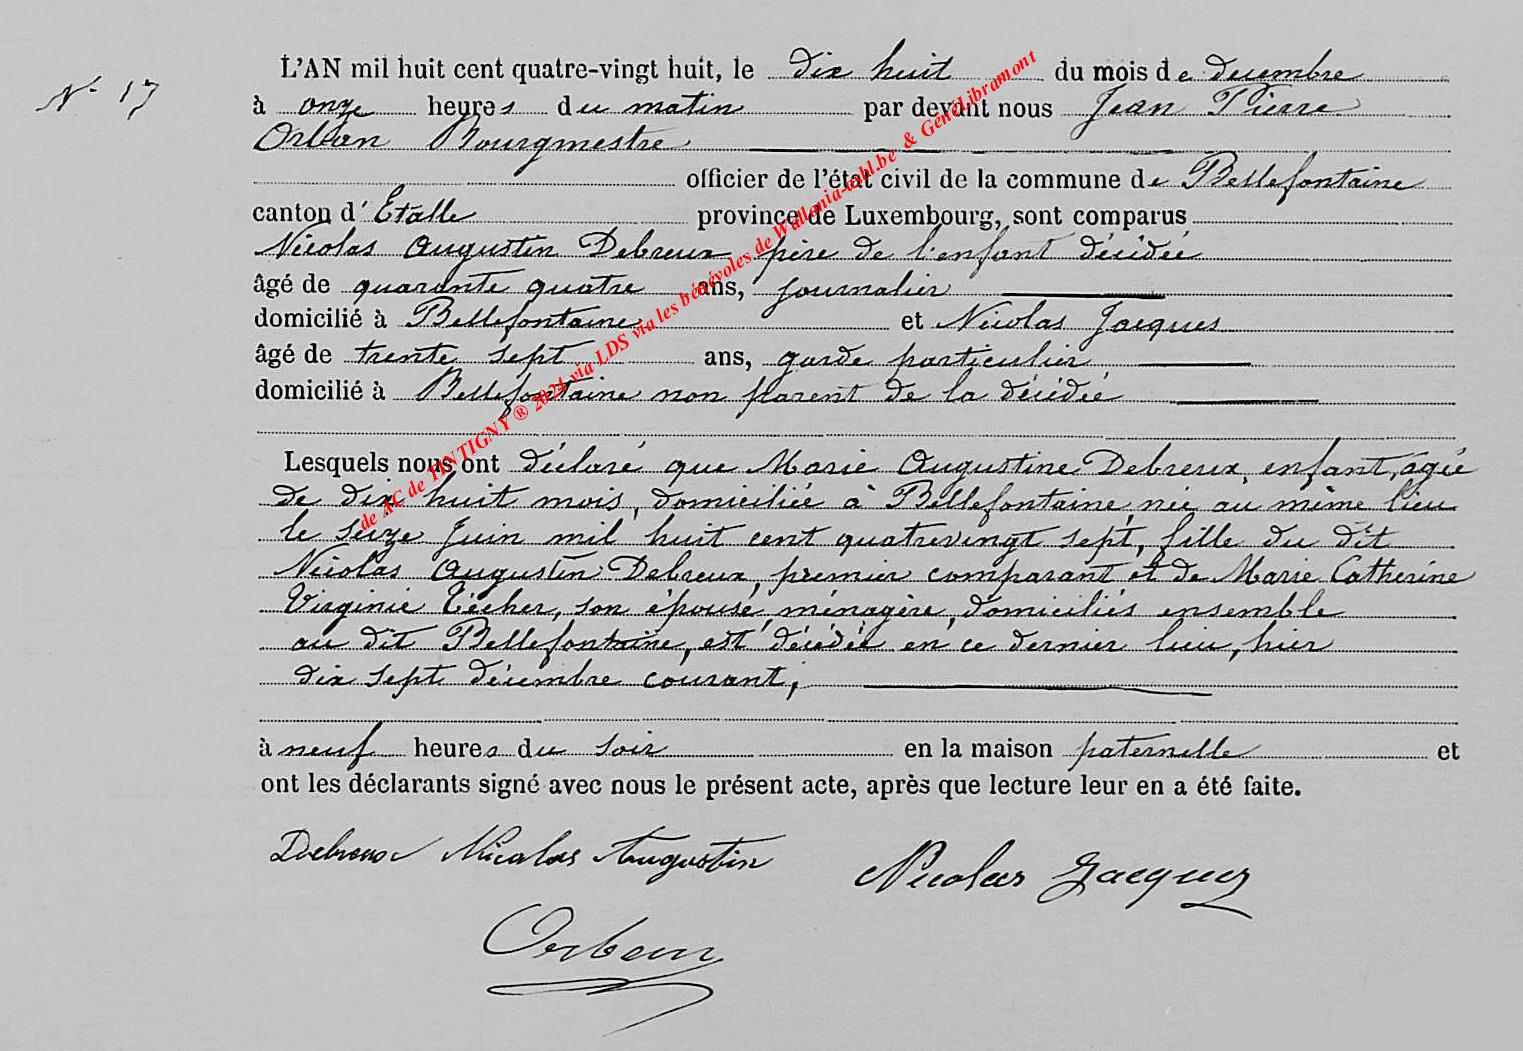 N° 17
L'AN mil huit cent quatre-vingt huit, le dix huit du mois de decembre
à onze heures du matin par devant nous Jean Pierre
Orban Bourgmestre
officier de l'état civil de la commune de Bellefontaine
canton d'Etalle province de Luxembourg, sont comparus
Nicolas Augustin Debreux père de l'enfant décédée
âgé de quarante quatre ans, journalier
domicilié à Bellefontaine et Nicolas Jacques
âgé de trente sept ans, garde particulier
domicilié à Bellefontaine non parent de la décédée
Lesquels nous ont déclaré que Marie Augustine Debreux, enfant, agée
de dix huit mois, domiciliée à Bellefontaine, née au même lieu
le seize Juin mil huit cent quatrevingt sept, fille du dit
Nicolas Augustin Debreux, premier comparant et de Marie Catherine
Virginie Técher, son épouse, ménagère, domiciliés ensemble
au dit Bellefontaine, est décédée en ce dernier lieu, hier
dix sept décembre courant,
à neuf heures du soir en la maison paternelle et
ont les déclarants signé avec nous le présent acte, après que lecture leur en a été faite.
Debreux Nicolas Augustin
Nicolas Jacques
Orban
de AC de TINTIGNY ® 2024 via LDS via les bénévoles de Wallonia-asbl.be & GénéLibramont